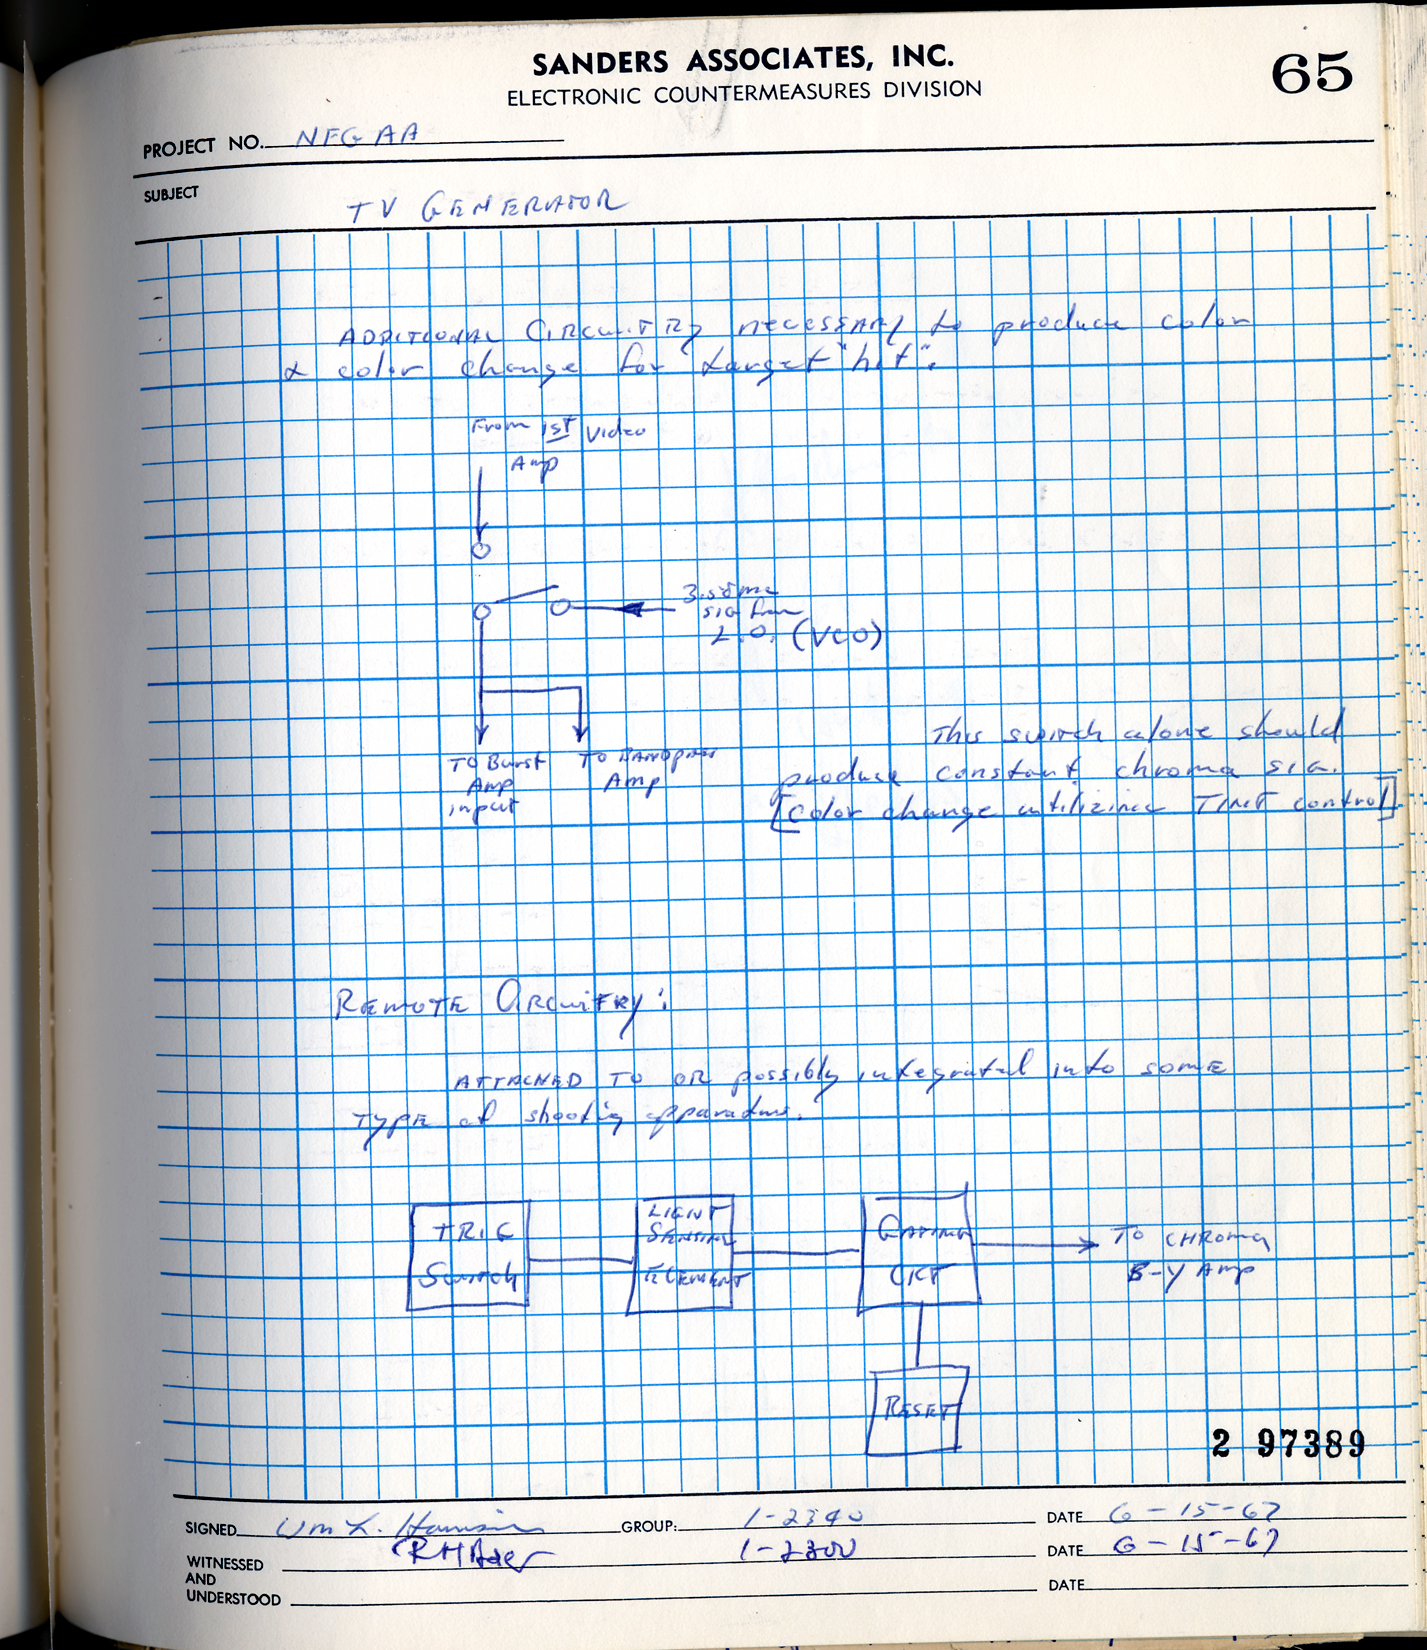 SANDERS ASSOCIATES, INC.
ELECTRONIC COUNTERMEASURES DIVISION
65
PROJECT NO. NFGAA
SUBJECT
TV GENERATOR
ADDITIONAL CIRCUITRY necessary to produce color
& color change for target "hit".
From 1st Video
Amp
3.58mc
SIG from
L.O. (VCO)
TO Burst
Amp
input
TO BANDPASS
Amp
This switch alone should
produce constant chroma SIG.
[Color change utilizing TINT control]
REMOTE CIRCUITRY:
ATTACHED TO OR possibly integrated into some
TYPE of shooting apparatus.
TRIG
Switch
LIGHT
SENSING
ELEMENT
GATING
CKT
TO CHROMA
B-Y Amp
RESET
2 97389
SIGNED Wm L. Harrison GROUP: 1-2340 DATE 6-15-67
WITNESSED RHBaer 1-2300 DATE 6-15-67
AND
UNDERSTOOD DATE